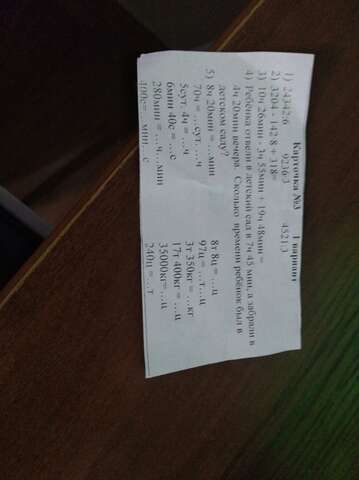 Карточка №3 1 вариант
1) 24342:6 9236:3 4521:3
2) 3204 - 142·8 + 318=
3) 10ч 26мин - 3ч 55мин + 19ч 48мин =
4) Ребёнка отвели в детский сад в 7ч 45 мин, а забрали в
4ч 20мин вечера. Сколько времени ребёнок был в
детском саду?
5) 8ч 20мин = …мин 8т 8ц = …ц
70ч = …сут. …ч 97ц = …т…ц
5сут. 4ч = …ч 3т 350кг = …кг
6мин 40с = …с 17т 400кг = …ц
280мин = …ч…мин 35000кг=…ц
400с=…мин…с 240ц = …т